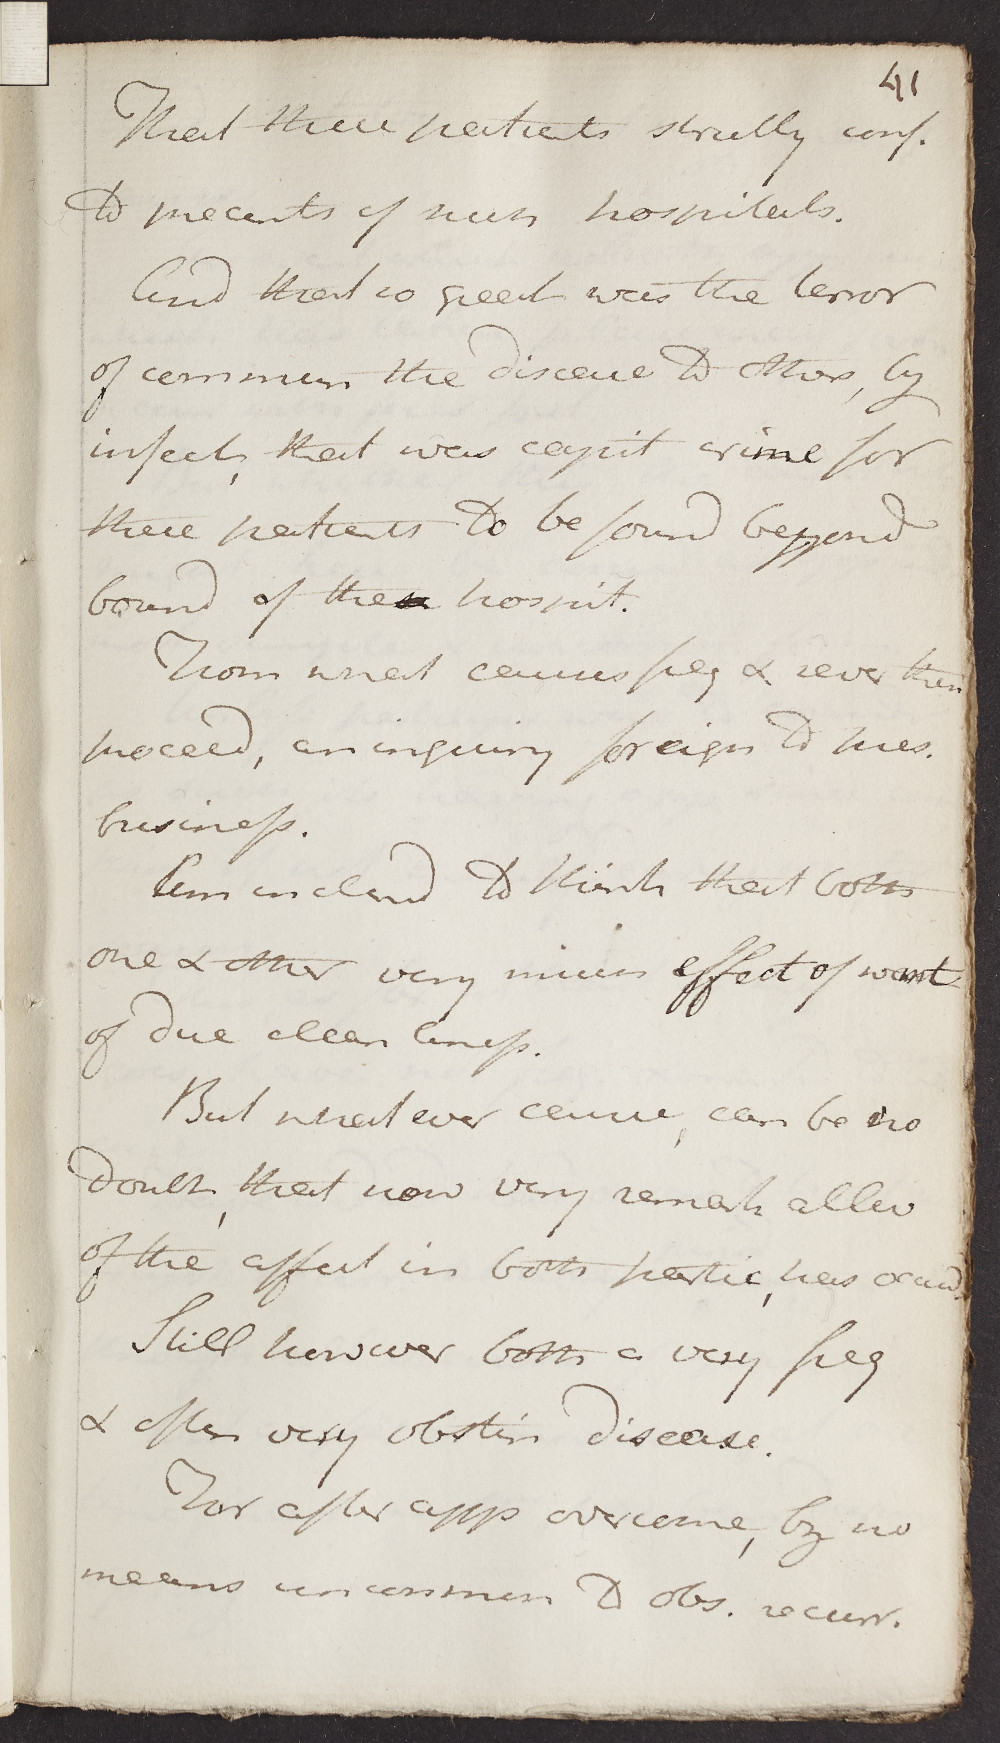 41
That these patients strictly conf.
to precincts of such hospitals.
And that so great was the terror
of commun the disease to others, by
infect, that was capit crime for
these patients to be found beyond
bound of these hospit.
From what causes freq & sever then
proceed, an inquiry foreign to pres.
business.
Am inclind to think that both
one & other very much effect of want
of due cleanliness.
But whatever cause, can be no
doubt, that now very remark allev
of the affect in both partic, has occurd.
Still however both a very freq
& often very obstin disease.
For after app overcome, by no
means uncommon to obs. recurr.